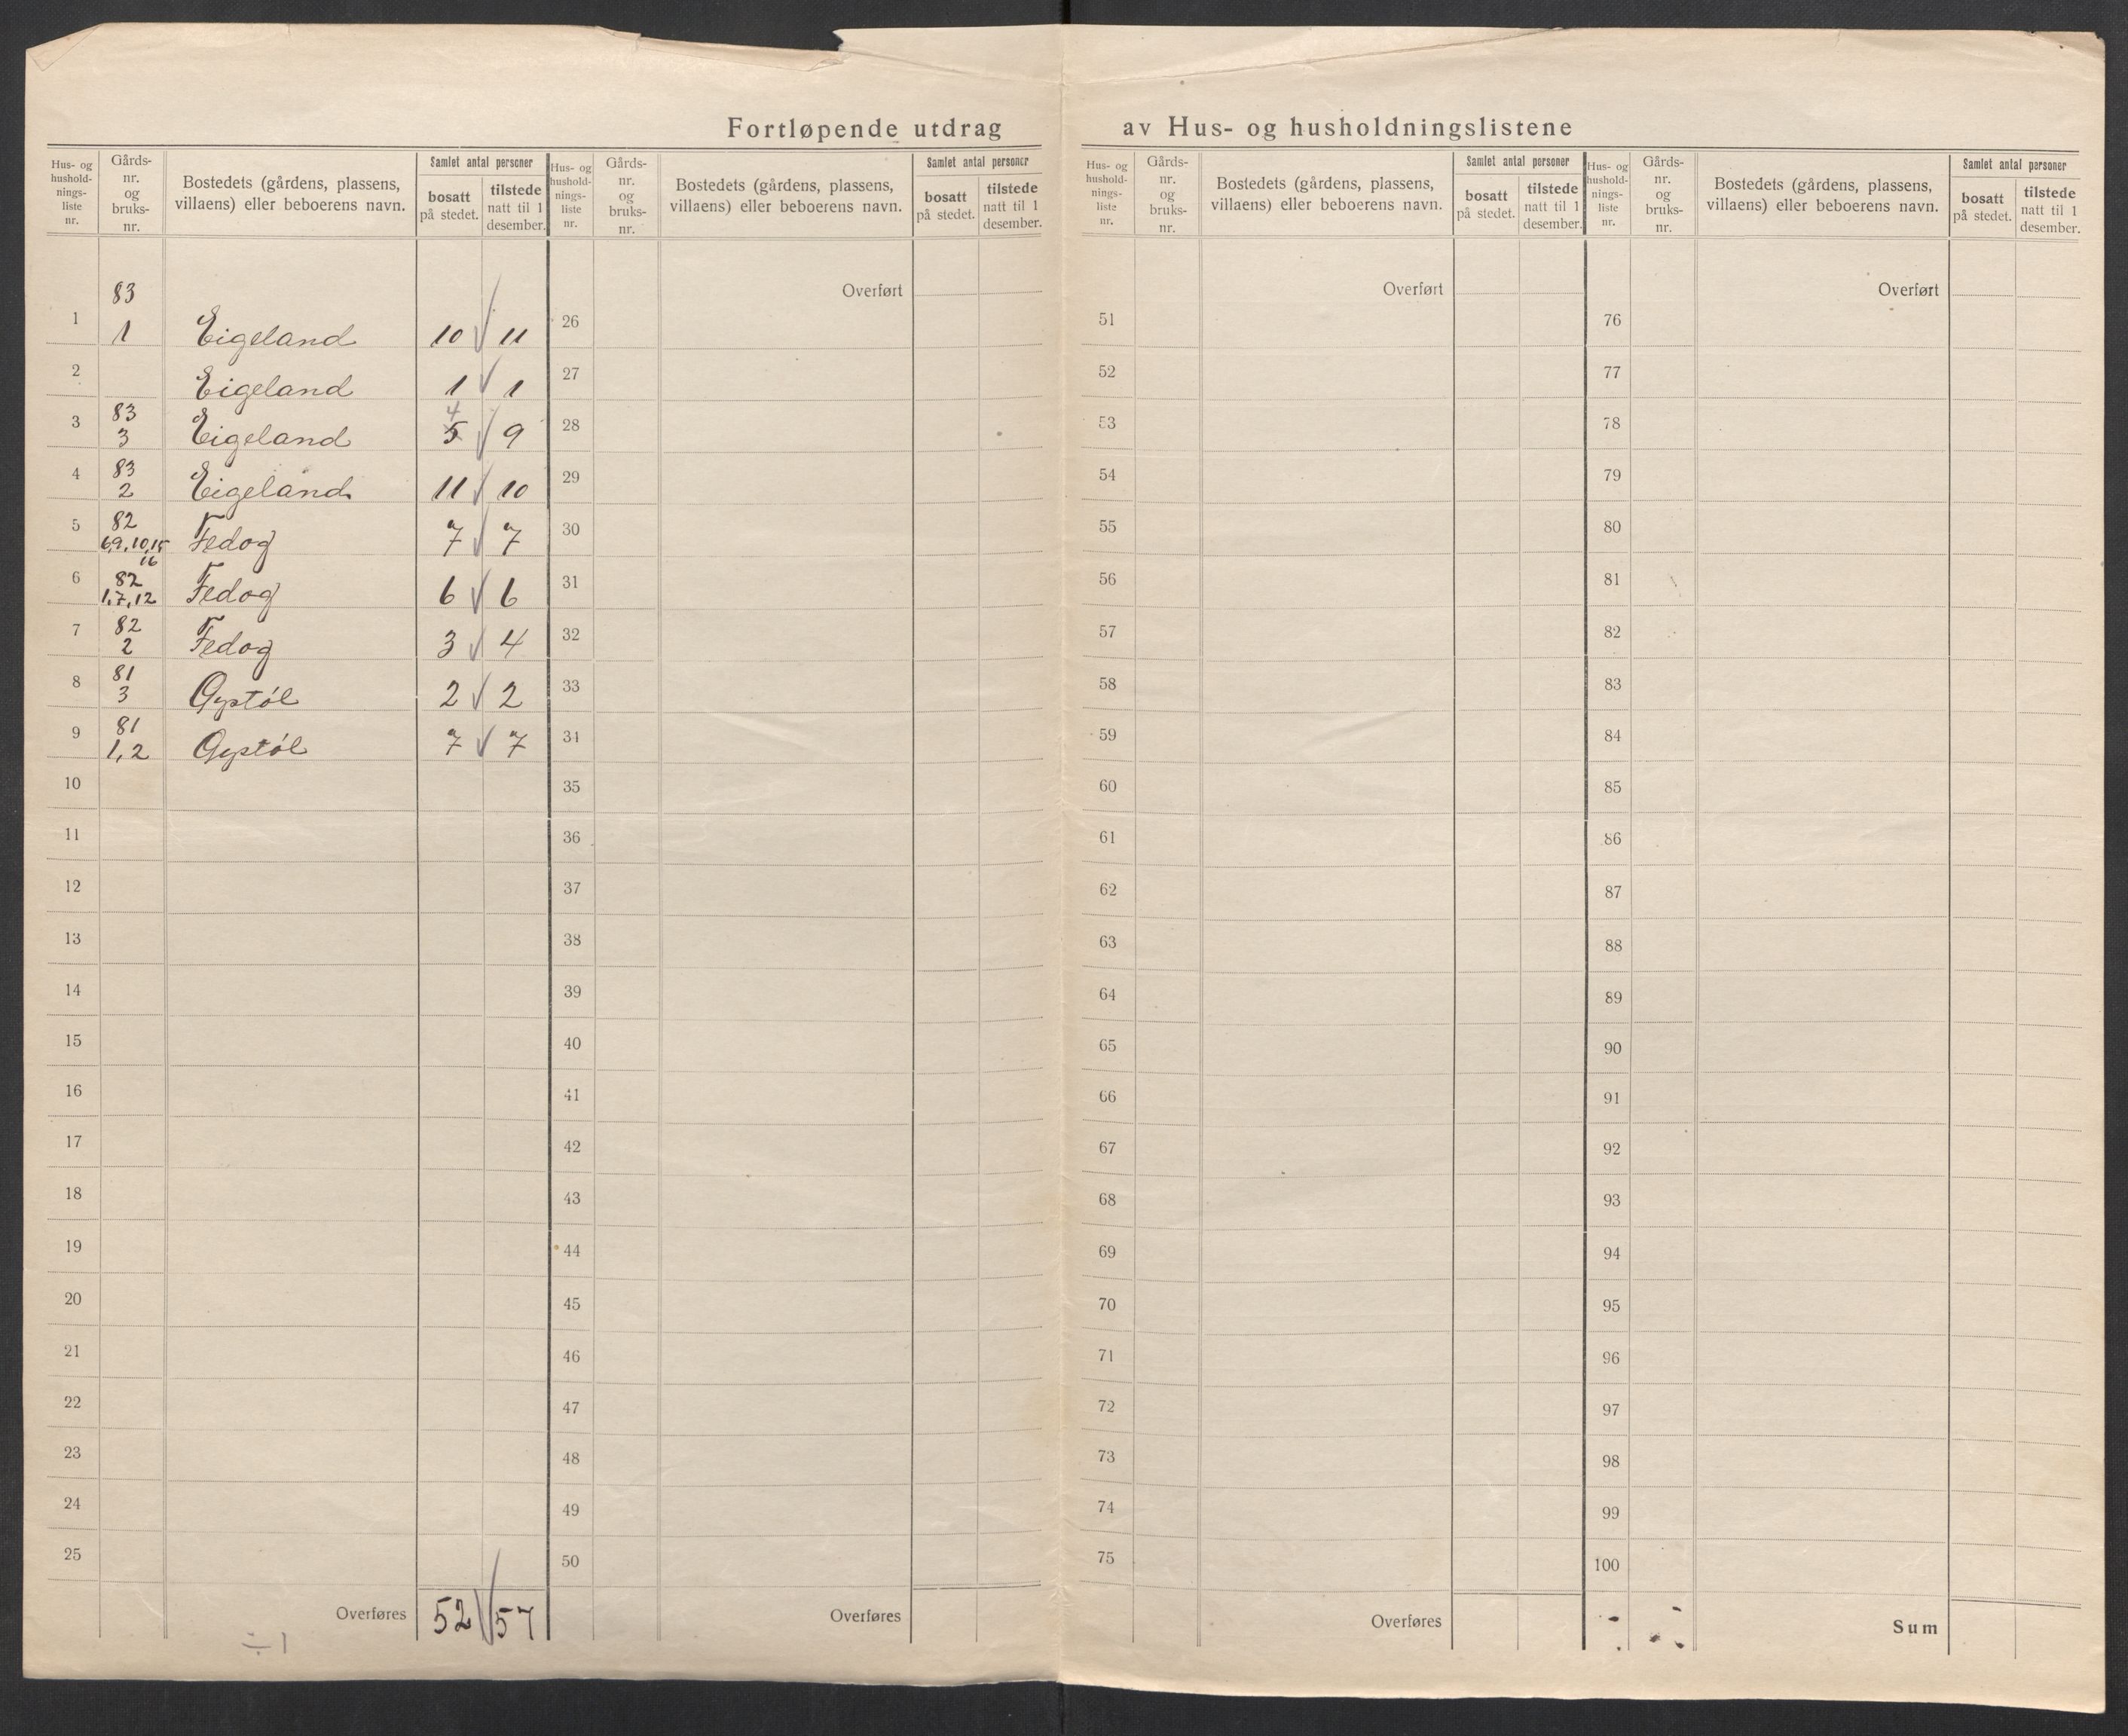 Fortløpende utdrag av Hus- og husholdningslistene
Hus- og hushold-nings-liste nr. Gårds-nr. og bruks-nr. Bostedets (gårdens, plassens, villaens) eller beboerens navn. Samlet antal personer bosatt på stedet. tilstede natt til 1 desember.
83
1 1 Eigeland 10 11
2 Eigeland 1 1
3 83 3 Eigeland 5 4 9
4 83 2 Eigeland 11 10
5 82 6,9,10,15 16 Fedog 7 7
6 82 1,7,12 Fedog 6 6
7 82 2 Fedog 3 4
8 81 3 Gystøl 2 2
9 81 1,2 Gystøl 7 7
10
11
12
13
14
15
16
17
18
19
20
21
22
23
24
25
Overføres 52 57
÷1
Hus- og hushold-nings-liste nr. Gårds-nr. og bruks-nr. Bostedets (gårdens, plassens, villaens) eller beboerens navn. Samlet antal personer bosatt på stedet. tilstede natt til 1 desember.
Overført
26
27
28
29
30
31
32
33
34
35
36
37
38
39
40
41
42
43
44
45
46
47
48
49
50
Overføres
Hus- og hushold-nings-liste nr. Gårds-nr. og bruks-nr. Bostedets (gårdens, plassens, villaens) eller beboerens navn. Samlet antal personer bosatt på stedet. tilstede natt til 1 desember.
Overført
51
52
53
54
55
56
57
58
59
60
61
62
63
64
65
66
67
68
69
70
71
72
73
74
75
Overføres
Hus- og hushold-nings-liste nr. Gårds-nr. og bruks-nr. Bostedets (gårdens, plassens, villaens) eller beboerens navn. Samlet antal personer bosatt på stedet. tilstede natt til 1 desember.
Overført
76
77
78
79
80
81
82
83
84
85
86
87
88
89
90
91
92
93
94
95
96
97
98
99
100
Sum